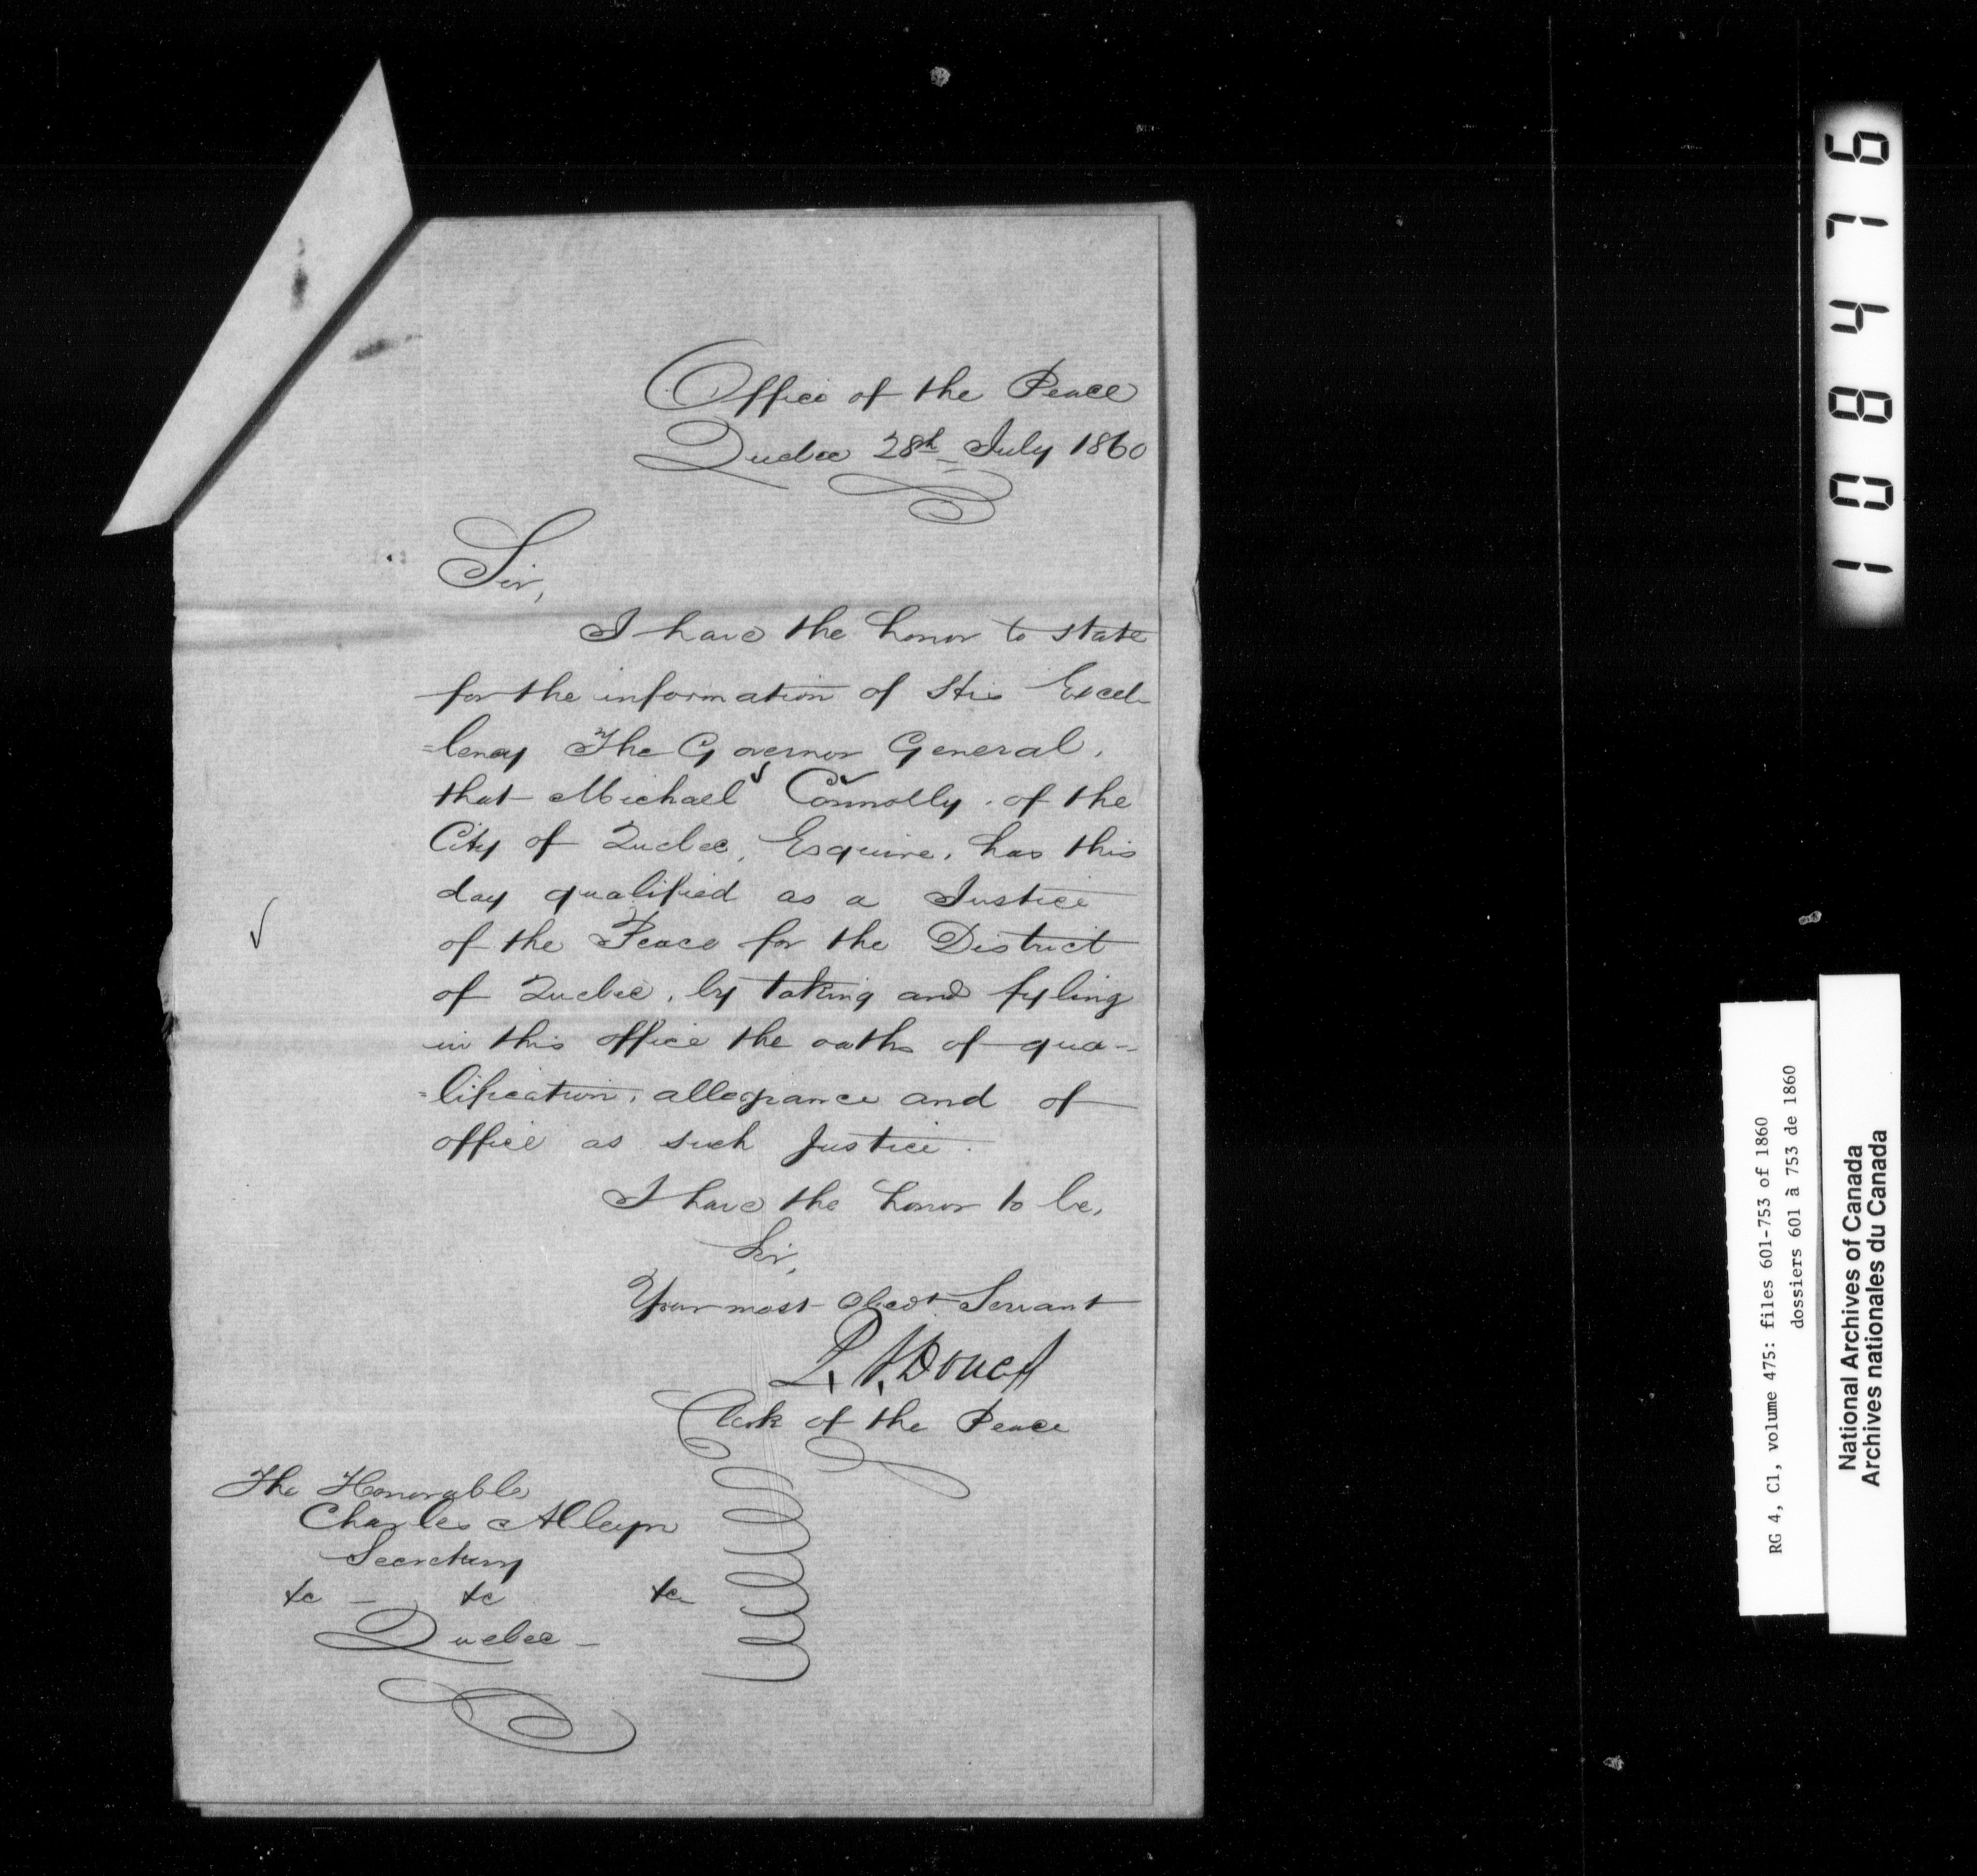 Office of the Peace
Quebec 28th July 1860
Sir,
I have the honor to state
for the information of His Excel-
=lency The Governor General,
that Michael Connolly, of the
City of Quebec, Esquire, has this
day qualified as a Justice
of the Peace for the District
of Quebec, by taking and fyling
in this office the oaths of qua-
=lification, allegiance and of
office as such Justice.
I have the honor to be,
Sir,
Your most obedt Servant
Doucet
Clerk of the Peace
The Honorable
Charles Alleyn
Secretary
&c - &c &c
Quebec -
108476
RG 4, C1, volume 475: files 601-753 of 1860
dossiers 601 à 753 de 1860
National Archives of Canada
Archives nationales du Canada